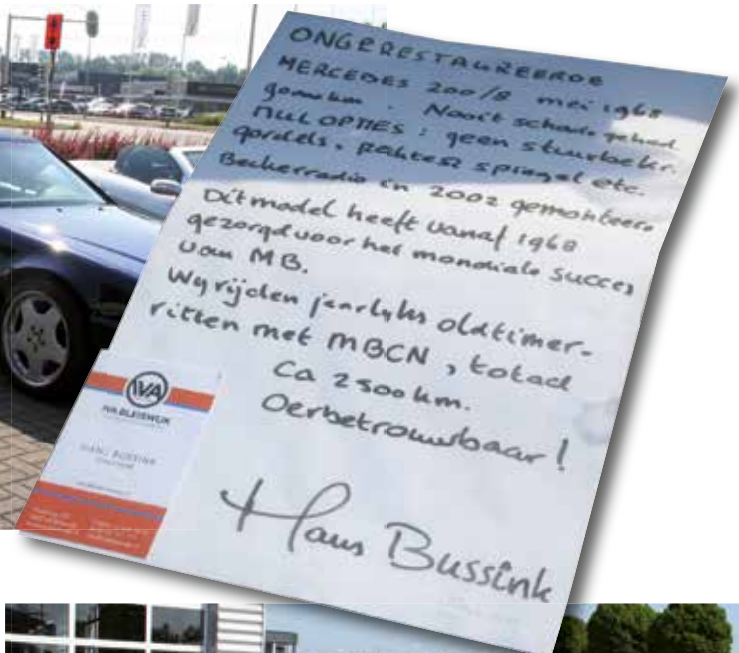 ONGERESTAUREERDE
MERCEDES 200/8 mei 1968
Nooit schade gehad
NUL OPTIES: geen stuurbekr.
gordels, rechter spiegel etc.
Beckerradio in 2002 gemonteerd
Dit model heeft vanaf 1968
gezorgd voor het mondiale succes
van MB.
Wij rijden jaarlijks oldtimer-
ritten met MBCN, totaal
Ca 2500 km.
Oerbetrouwbaar!
Hans Bussink
IVA
IVA BLEISWIJK
HANS BUSSINK